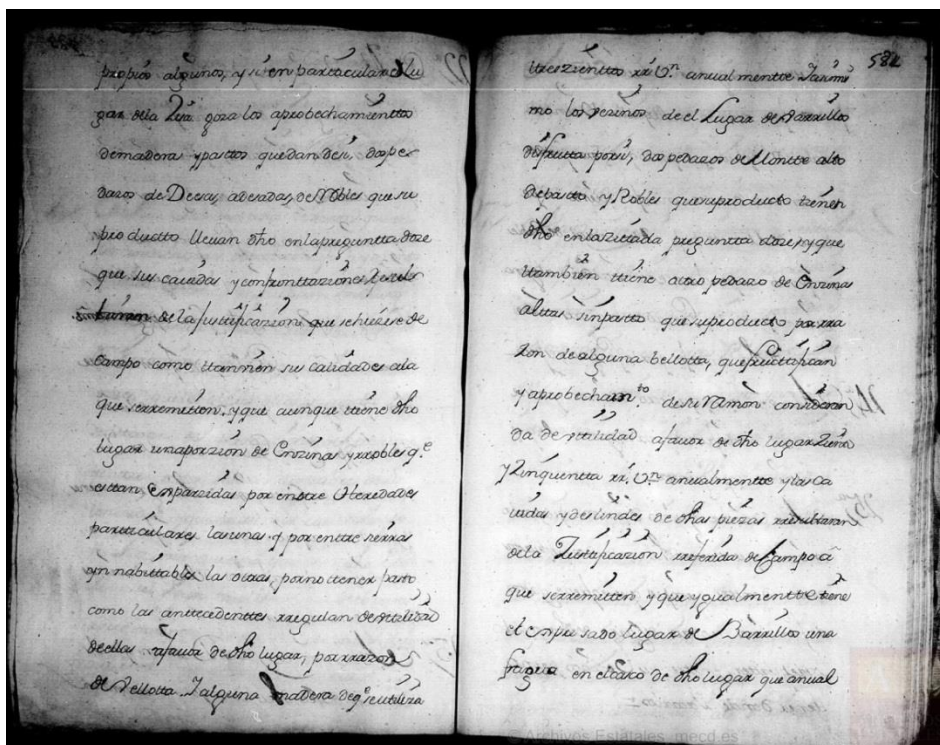 propios algunos, y si en particular el Lu
gar de la goza los aprobechamienttos
de madera y pasttos quedan de si, dos pe
dazos de Decsas, adesadas, de Robles que su
productto llevan dho en la preguntta doze
que sus cavidas y confronttaziones
de la justtificazion que se hiziese de
campo como ttanvien sus calidades a la
que se rremitten, y que aunque ttiene dho
lugar una porzion de Enzinas y rrobles q.e
esttan Enparzidas por enttre Heredades
partticulares las unas, y por enttre sierras
ynnabittables las otras, por no ttener pastto
como las anttecedenttes rregulan de uttilidad
de ellas a favor de dho lugar, por rrazon
de vellotta. I alguna madera de q.e se uttiliza
582
ttreszienttos rr.s v.n anualmentte
mo los vezinos de el Lugar de Barrillos
disfrutta por si, dos pedazos de Montte altto
de pastto y Robles que su producto tienen
dho en la zittada preguntta doze, y que
ttambien ttiene ottro pedazo de Enzinas
alttas sin pastto que su producto por rra
zon de alguna bellotta, que fructtifican
y aprobecham.to de su Ramon consideran
da de uttilidad a favor de dho lugar Zientto
y Zinquentta rr.s v.n anualmentte y las ca
vidas y deslindes de dhas piezas rresulttaran
de la Justtificazion rreferida de Campo a
que se rremitten y que ygualmentte ttiene
el enpresado lugar de Barrillos una
fragua en el caxo de dho lugar que anual
© Archivos Estatales, mecd.es